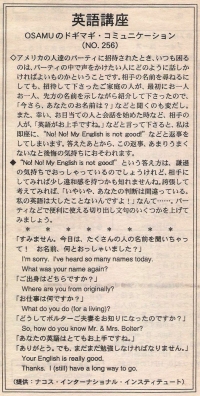 英語講座
OSAMUのドギマギ・コミュニケーション
(NO. 256)
◇アメリカの人達のパーティに招待されたとき、いつも困る
のは、パーティの中で声をかけたい人にどのように話しか
ければよいものかということです。相手の名前を尋ねるに
しても、招待して下さったご家庭の人が、最初にお一人
お一人、先方の名前を示しながら紹介して下さったので、
「今さら、あなたのお名前は?」などと聞くのも変だし。
また、幸い、お目当ての人と会話を始めた時など、相手の
人が、「英語がお上手ですね。」などと言って下さると、私は
即座に、"No! No! My English is not good!" などと返事を
してしまいます。答えたあとから、この返事、あまりうまく
ないなと後悔の気持ちにおそわれます。
◆ "No! No! My English is not good!" という答え方は、謙遜
の気持ちでおっしゃっているのでしょうけれど、相手に
してみれば少し違和感を持つかも知れませんね。誇張して
考えてみれば、「いやいや、あなたの判断は間違っている。
私の英語は大したことないんですよ!」なんて……。パー
ティなどで便利に使える切り出し文句のいくつかを上げて
みましょう。
* * * * * * *
「すみません。今日は、たくさんの人の名前を聞いちゃっ
て! お名前、何とおっしゃいました?」
I'm sorry. I've heard so many names today.
What was your name again?
「ご出身はどちらですか?」
Where are you from originally?
「お仕事は何ですか?」
What do you do (for a living)?
「どうしてボルターご夫妻をお知りになったのですか?」
So, how do you know Mr. & Mrs. Bolter?
「あなたの英語はとてもお上手ですね。」
「ありがとう。でも、まだまだ勉強しなければなりません。」
Your English is really good.
Thanks. I (still) have a long way to go.
(提供:ナコス・インターナショナル・インスティテュート)